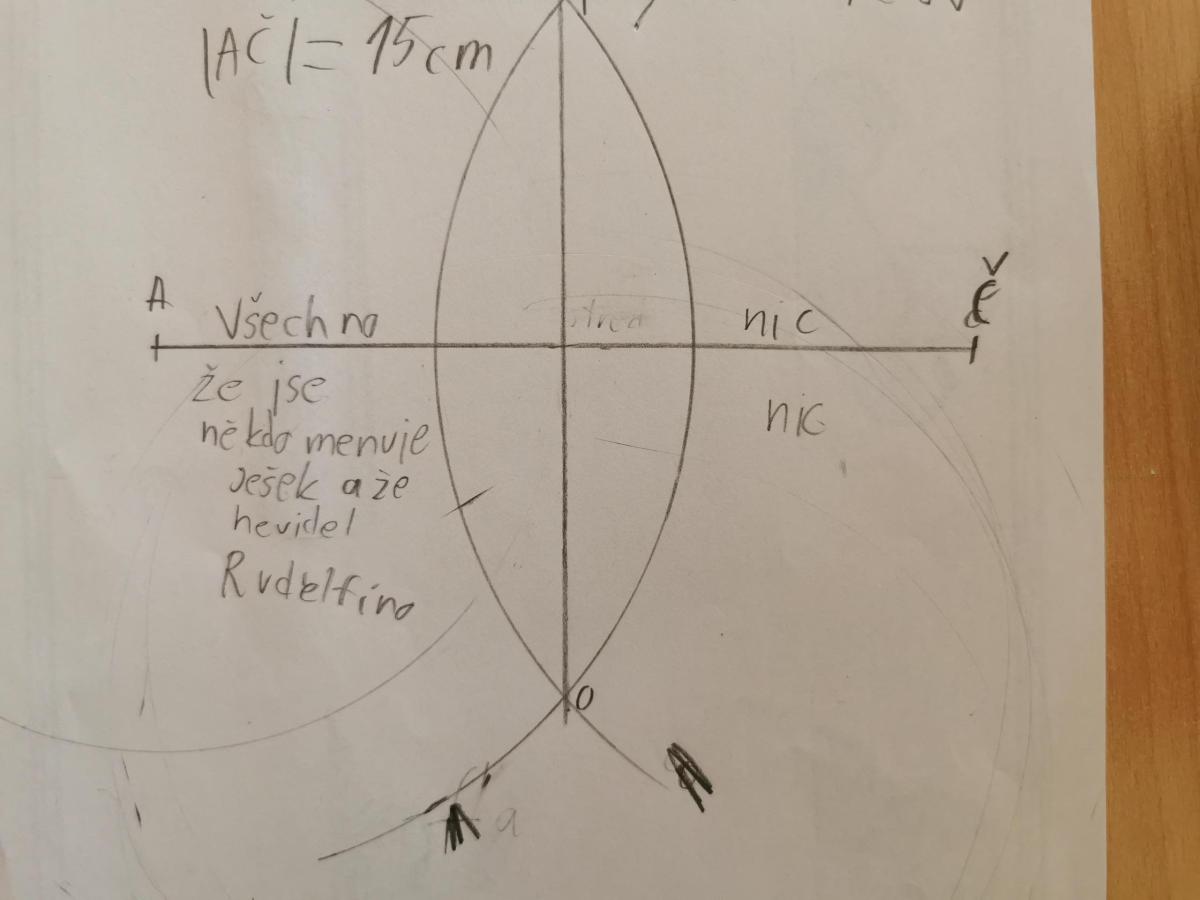 |AČ| = 15 cm
A
Č
Všechno
střed
nic
že jse
někdo menuje
Ješek a že
nevidel
Rudelfíno
nic
O
a